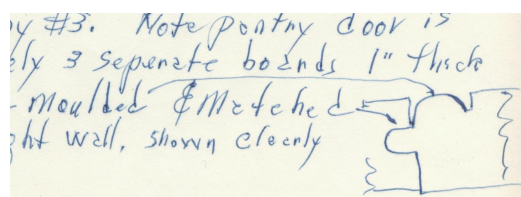 y #3. Note pantry door is
ely 3 seperate boards 1" thick
-moulded & Matched
ght wall, shown clearly